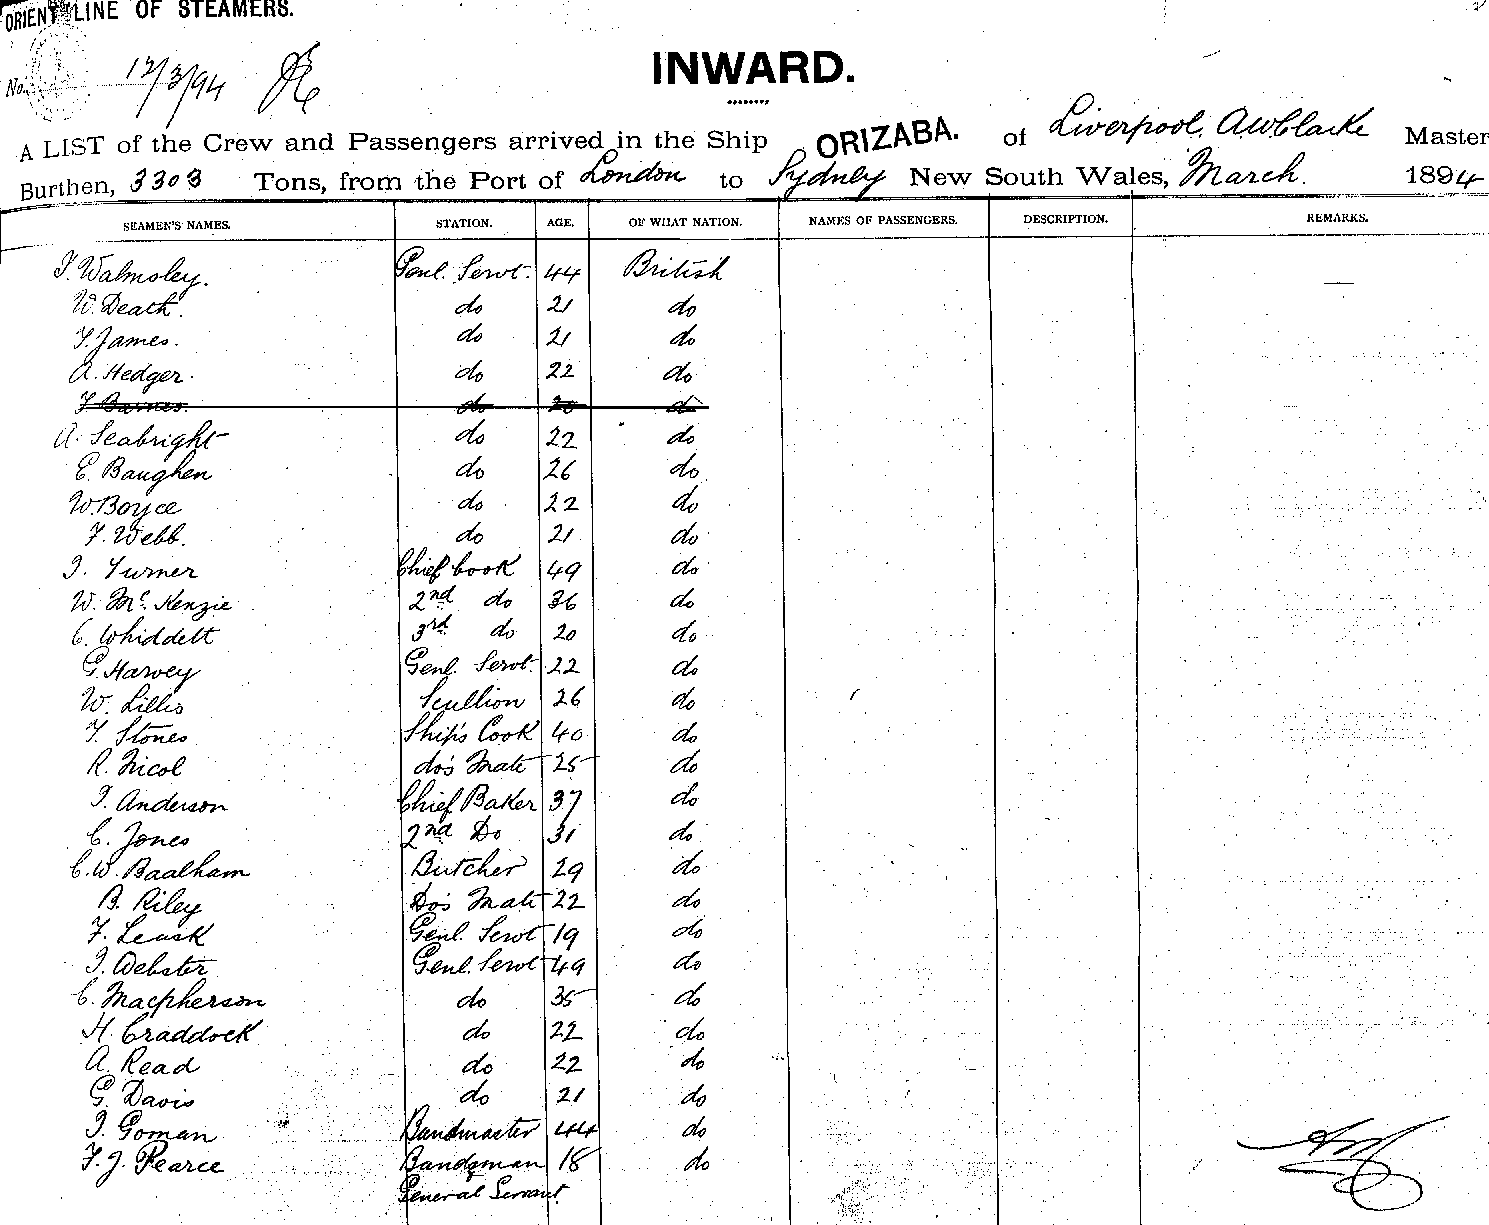 ORIENT LINE OF STEAMERS.
No. 12/3/94
INWARD.
A LIST of the Crew and Passengers arrived in the Ship ORIZABA. of Liverpool, AW Clarke Master
Burthen, 3303 Tons, from the Port of London to Sydney New South Wales, March. 1894
SEAMEN'S NAMES. STATION. AGE. OF WHAT NATION. NAMES OF PASSENGERS. DESCRIPTION. REMARKS.
J. Walmsley. Genl. Servt. 44 British
W. Death. do 21 do
F. James. do 21 do
A. Hedger. do 22 do
F Barnes. do 20 do
A. Seabright do 22 do
E. Baughen do 26 do
W. Boyce do 22 do
F. Webb. do 21 do
J. Turner Chief Cook 49 do
W. Mc. Kenzie 2nd do 36 do
C. Whiddett 3rd do 20 do
G. Harvey Genl. Servt. 22 do
W. Lillis Scullion 26 do
F. Stones Ship's Cook 40 do
R. Nicol do's Mate 25 do
J. Anderson Chief Baker 37 do
C. Jones 2nd Do 31 do
C. W. Baalham Butcher 29 do
B. Riley Do's Mate 22 do
F. Leask Genl. Servt 19 do
J. Webster Genl. Servt 49 do
C. Macpherson do 35 do
H. Craddock do 22 do
A. Read do 22 do
G. Davis do 21 do
J. Goman Bandmaster 44 do
F. J. Pearce Bandsman 18 do
General Servant